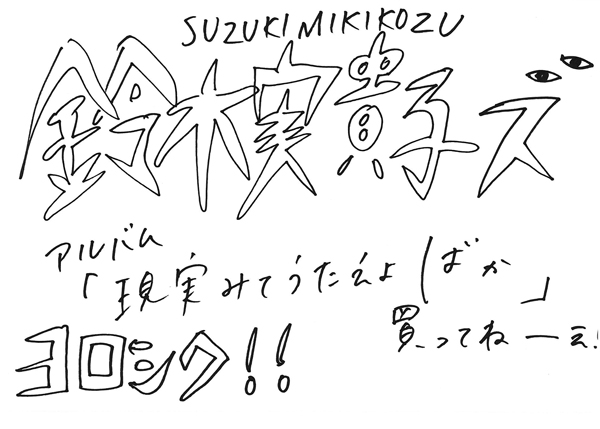 SUZUKI MIKIKOZU
鈴木実貴子ズ
アルバム
「現実みてうたえよばか」
買ってねーえ!
ヨロシク!!